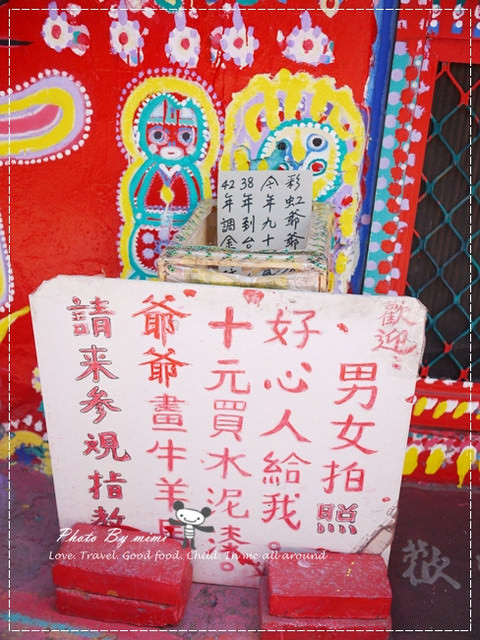 彩虹爺爺
今年九十
38年到台
42年調金
歡迎
男女拍照
好心人給我。
十元買水泥漆。
爺爺畫牛羊
請来参观指教
歡
Photo By mimi
Love. Travel. Good food. Child. In me all around